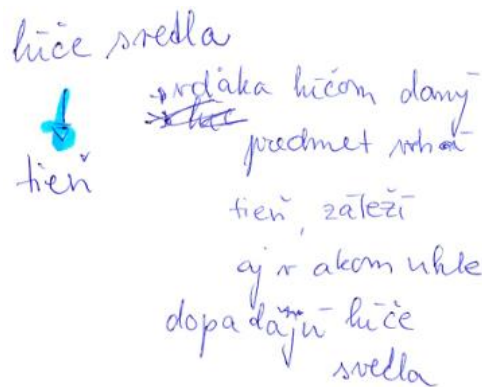 lúče svetla
→ vďaka lúčom daný
predmet vrhá
tieň
tieň, záleží
aj v akom uhle
dopadajú lúče
svetla